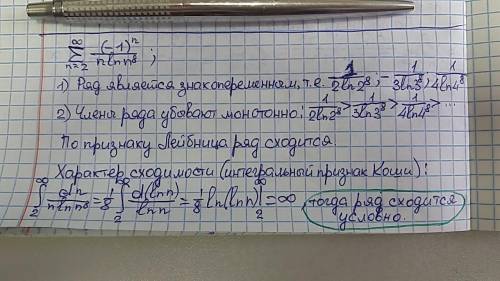 ∑_{n=2}^{∞} (-1)^n / (n ln n^8) ;
1) Ряд является знакопеременным, т.е. 1/(2ln2^8), -1/(3ln3^8), 1/(4ln4^8)
2) Члены ряда убывают монотонно: 1/(2ln2^8) > 1/(3ln3^8) > 1/(4ln4^8) > ...
По признаку Лейбница ряд сходится.
Характер сходимости (интегральный признак Коши):
∫_2^∞ dn/(n ln n^8) = 1/8 ∫_2^∞ d(ln n)/(ln n) = 1/8 ln(ln n)|_2^∞ = ∞, тогда ряд сходится
условно.